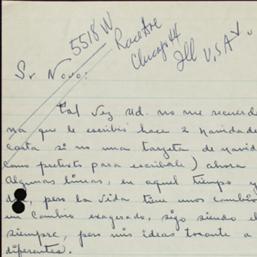 5518 W
Race Ave
Chicago 44
Ill U.S.A
Sr Novo:
Tal vez Ud. no me recuerde
ya que le escribi hace 2 navidades
carta si no una tarjeta de navidad
como pretexto para escribale) ahora
algunas lineas, en aquel tiempo y
pero la vida tiene unos cambios
un cambio exagerado, sigo siendo el
siempre, pero mis ideas tocante a
diferentes.